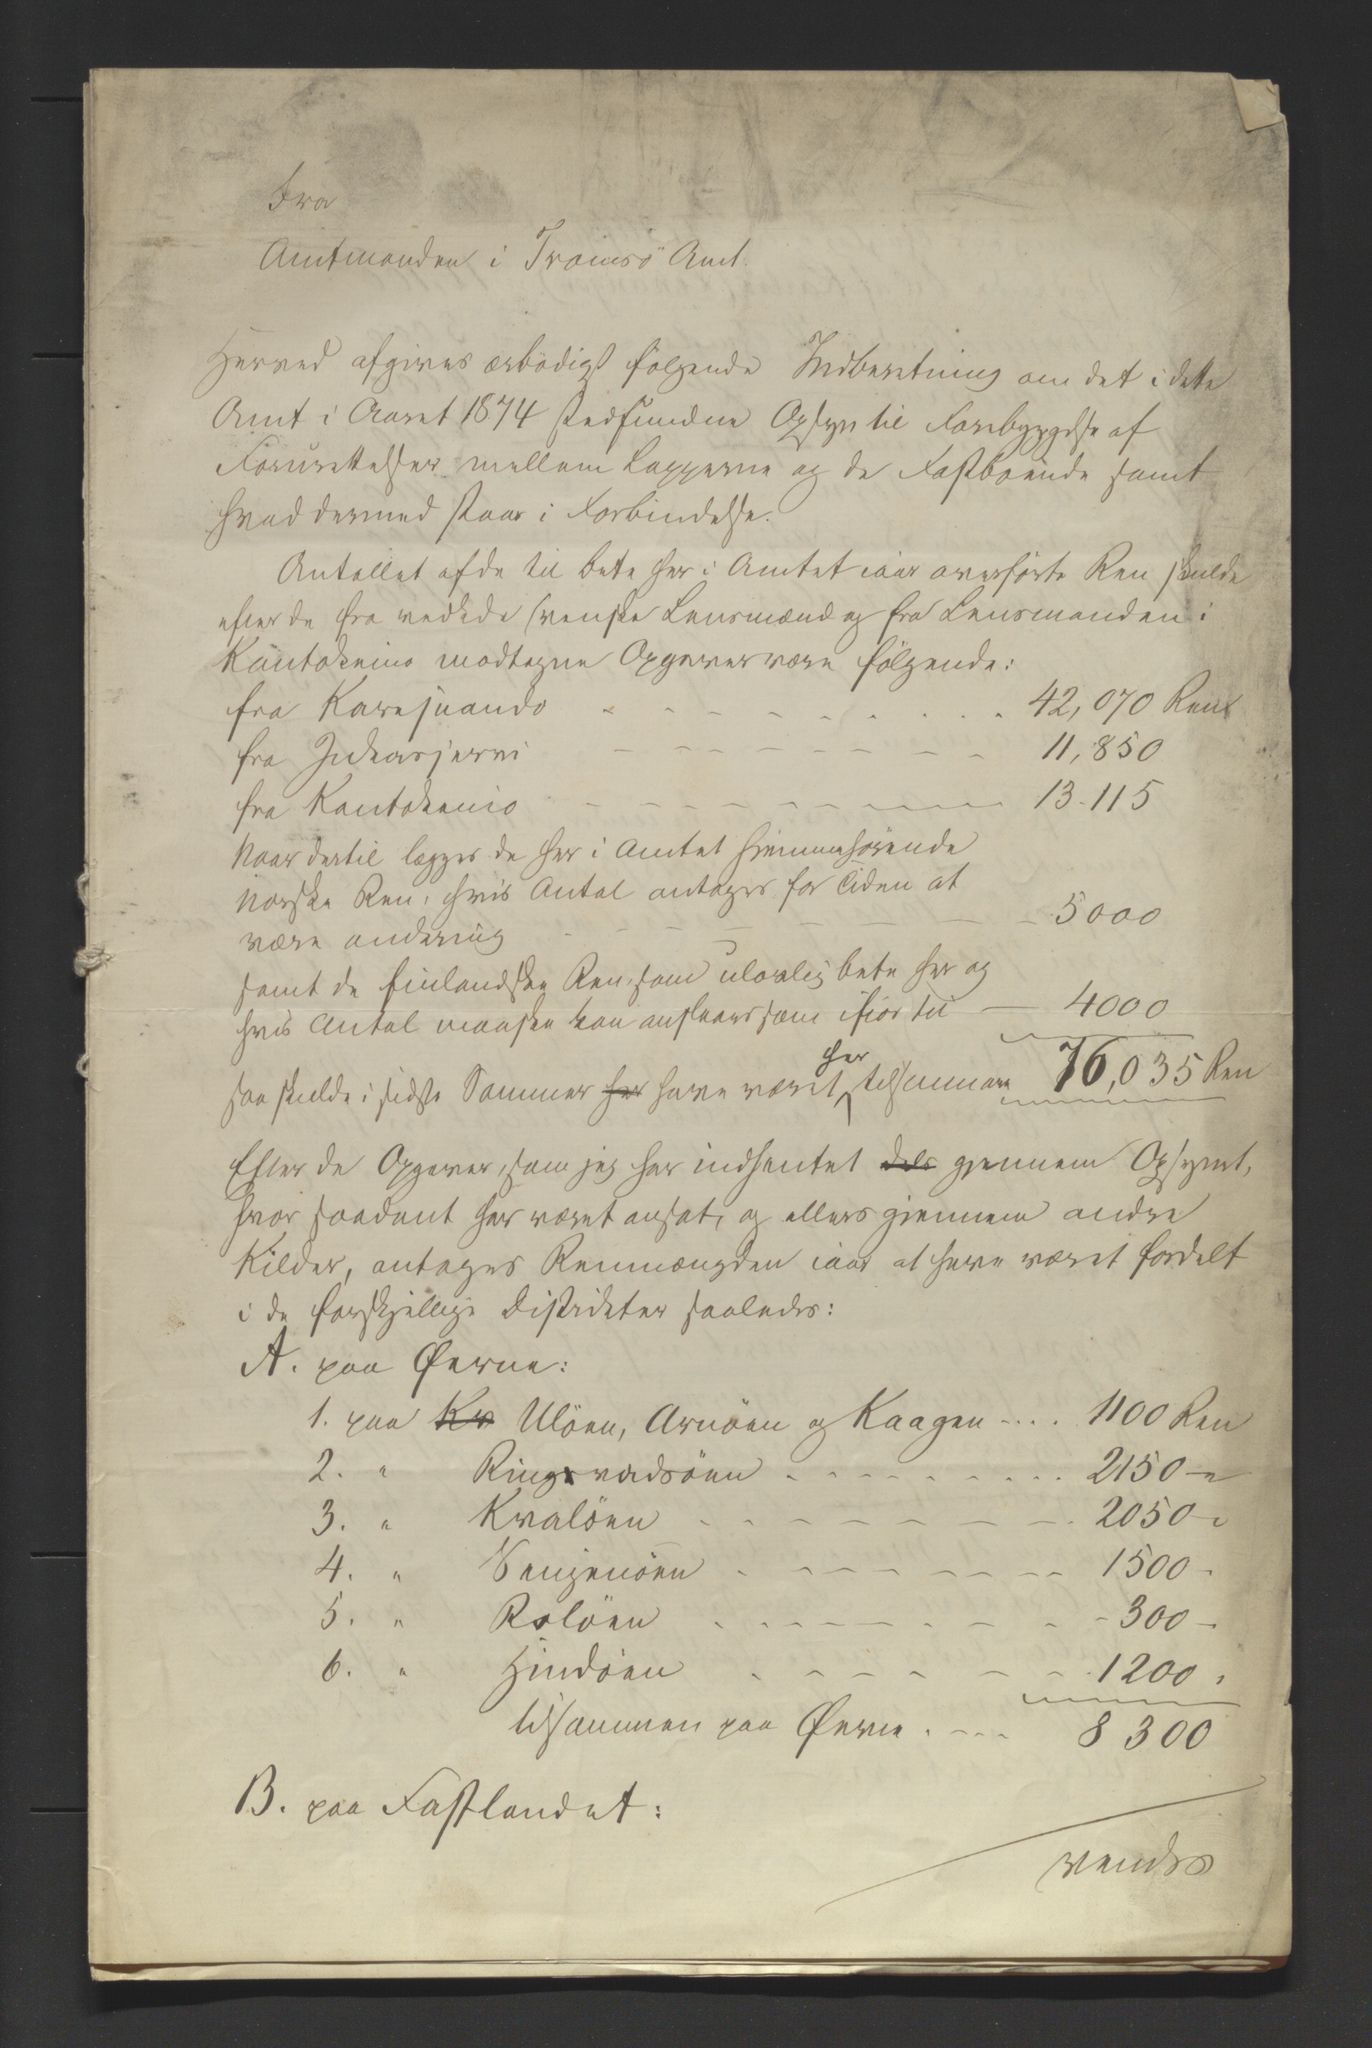 Fra
Amtmanden i Tromsö Amt.
Herved afgives ærbödigst fölgende Indberetning om det i dette
Amt i Aaret 1874 stedfundne Opsyn til Forebyggelse af
Forurettelser mellem Lapperne og de Fastboende samt
hvad dermed staar i Forbindelse.
Antallet af de til bete her i Amtet iaar overförte Ren skulde
efter de fra vedkde svenske Lensmænd og fra Lensmanden i
Kautokeino modtagne Opgaver være fölgende:
fra Karesuando - - - - - - - - - 42,070 Ren
fra Jukasjervi - - - - - - - - - 11,850
fra Kautokeino - - - - - - - - - 13.115
Naar dertil lægges de her i Amtet hjemmehörende
norske Ren, hvis Antal antages for Tiden at
være omkring - - - - - - - 5000
samt de finlandske Ren, som ulovlig bete her og
hvis Antal maaske kan ansluaes som ifjor til - 4000
saa skulde i sidste Sommer her have været her tilsammen 76,035 Ren
Efter de Opgaver, som jeg har indhentet dels gjennem Opsynet,
hvor saadant har været ansat, og ellers gjennem andre
Kilder, antages Renmængden iaar at have været fordelt
i de forskjellige Distrikter saaledes:
A. paa Øerne:
1. paa Kv Ulöen, Arnöen og Kaagen - - . . 1100 Ren
2. " Ringvadsöen - - - - - - - - - 2150 -"
3. " Kvalöen - - - - - - - - 2050 -"
4. " Senjenöen - - - - - - - 1500 -
5. " Rolöen - - - - - - - - 300 -
6. " Hindöen - - - - - - - 1200 "
tilsammen paa Øerne - - - - 8300
B. paa Fastlandet:
vendes